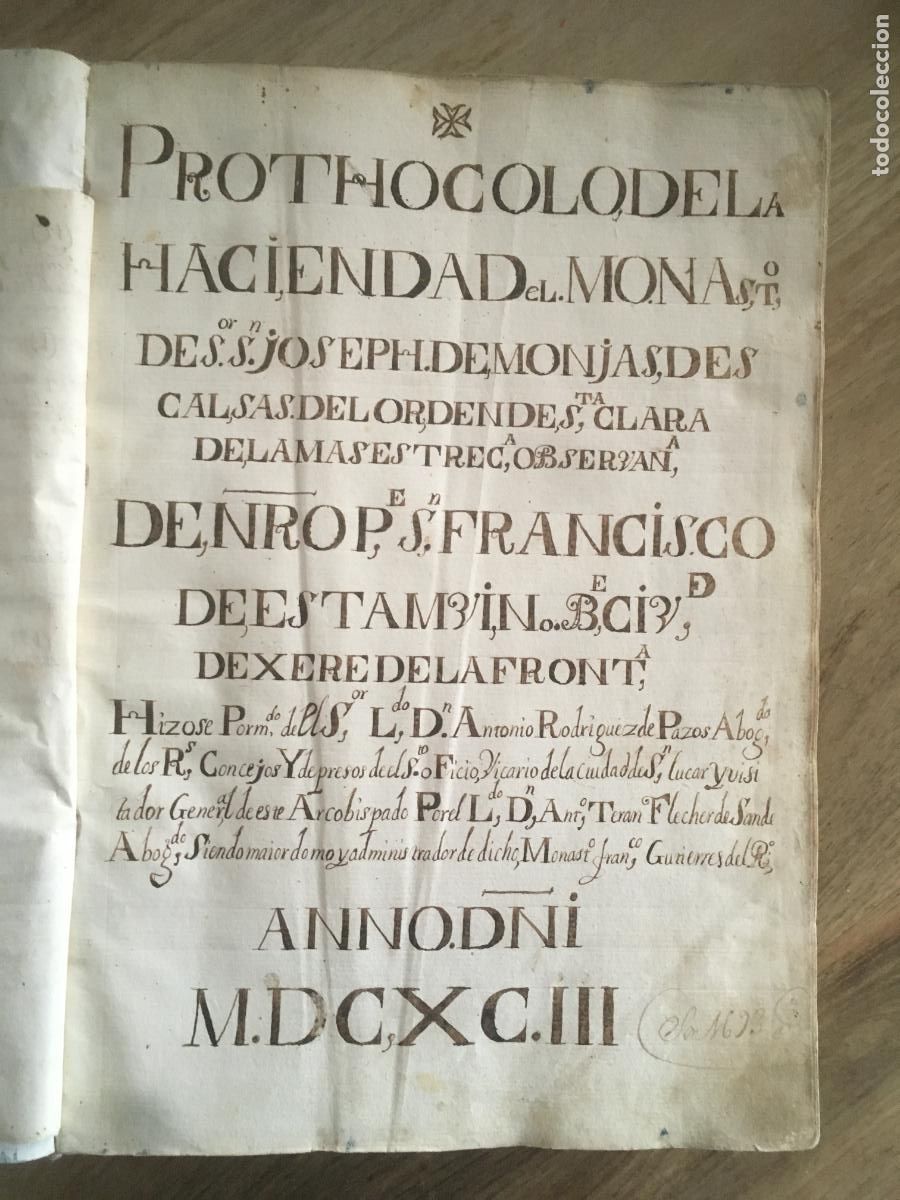 PROTHOCOLO,DELA
HACI,ENDADeL.MO.NAS,Tº,
DE.S.ᵒʳ Sⁿ. JOSEPH.DE,MONJAS,DES
CALSAS.DEL OR,DEN DE,S,ᵀᴬ CLARA
DE,LA MAS ESTRECᴬ, OBSERVANᴬ,
DE,NRO P,ᴱ S,ⁿ FRANCIS.CO
DE,ESTA MVI,No.Bᴱ,CIV,ᴰ
DE XERE DE LA FRONTᴬ,
Hizose Por mᵈᵒ, de el S,ᵒʳ L,ᵈᵒ Dⁿ. Antonio Rodriguez de Pazos Abogᵈᵒ,
de los Rˢ, Concejos Y de presos de el S.ᵗᵒ oFicio, Vicario de la ciudad de Sⁿ, lucar y visi
tador Generᵃl de este Arcobispado Por el L,ᵈᵒ Dⁿ, Antº, Teranº Flecher de Sande
Abogᵈᵒ, Siendo maiordomo y adminis trador de dicho, Monastº, franᶜᵒ, Gutierres del Rº,
ANNO.DNI
M.DC,XC.III
Sor M
todocoleccion